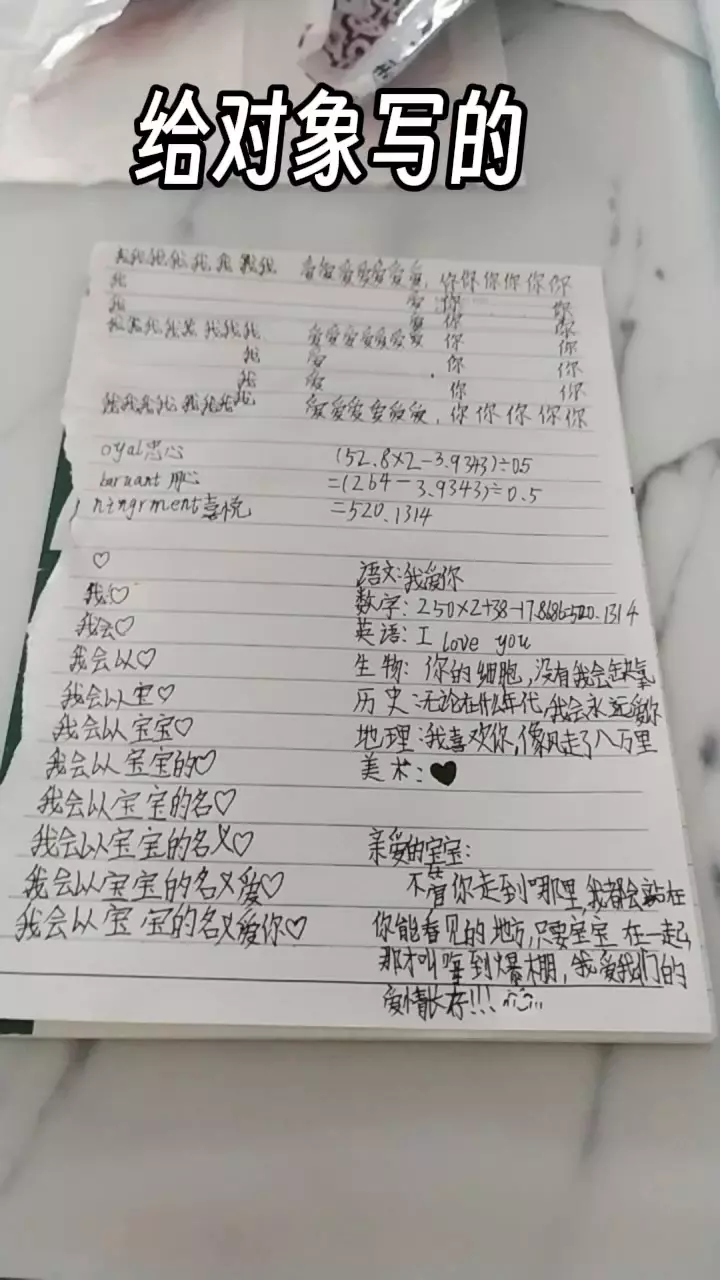 给对象写的
我我我我我我我我 爱爱爱爱爱爱爱 你你你你你你
我 爱 你 你
我 爱 你 你
我我我我我我我我 爱爱爱爱爱爱爱 你 你
我 爱 你 你
我 爱 你 你
我我我我我我我我 爱爱爱爱爱爱 你你你你你
oyal忠心
(52.8×2-3.9343)÷0.5
=(264-3.9343)÷0.5
喜悦
=520.1314
♡
我♡
我会♡
我会以♡
我会以宝♡
我会以宝宝♡
我会以宝宝的♡
我会以宝宝的名♡
我会以宝宝的名义♡
我会以宝宝的名义爱♡
我会以宝宝的名义爱你♡
语文:我爱你
数字:250×2+38-17.8686=520.1314
英语:I love you
生物:你的细胞,没有我会缺氧
历史:无论在什么年代,我会永远爱你
地理:我喜欢你,像风走了八万里
美术:♥
亲爱的宝宝:
不管你走到哪里,我都会站在
你能看见的地方,只要宝宝在一起
那才叫嗨到爆棚,我爱我们的
爱情长存!!!